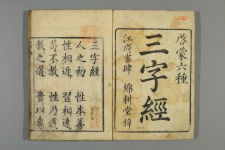 啓蒙六種
三字經
江戸書肆 錦耕堂梓
三字經
人之初 性本善
性相近 習相遠
苟不教 性乃遷
教之道 貴以專